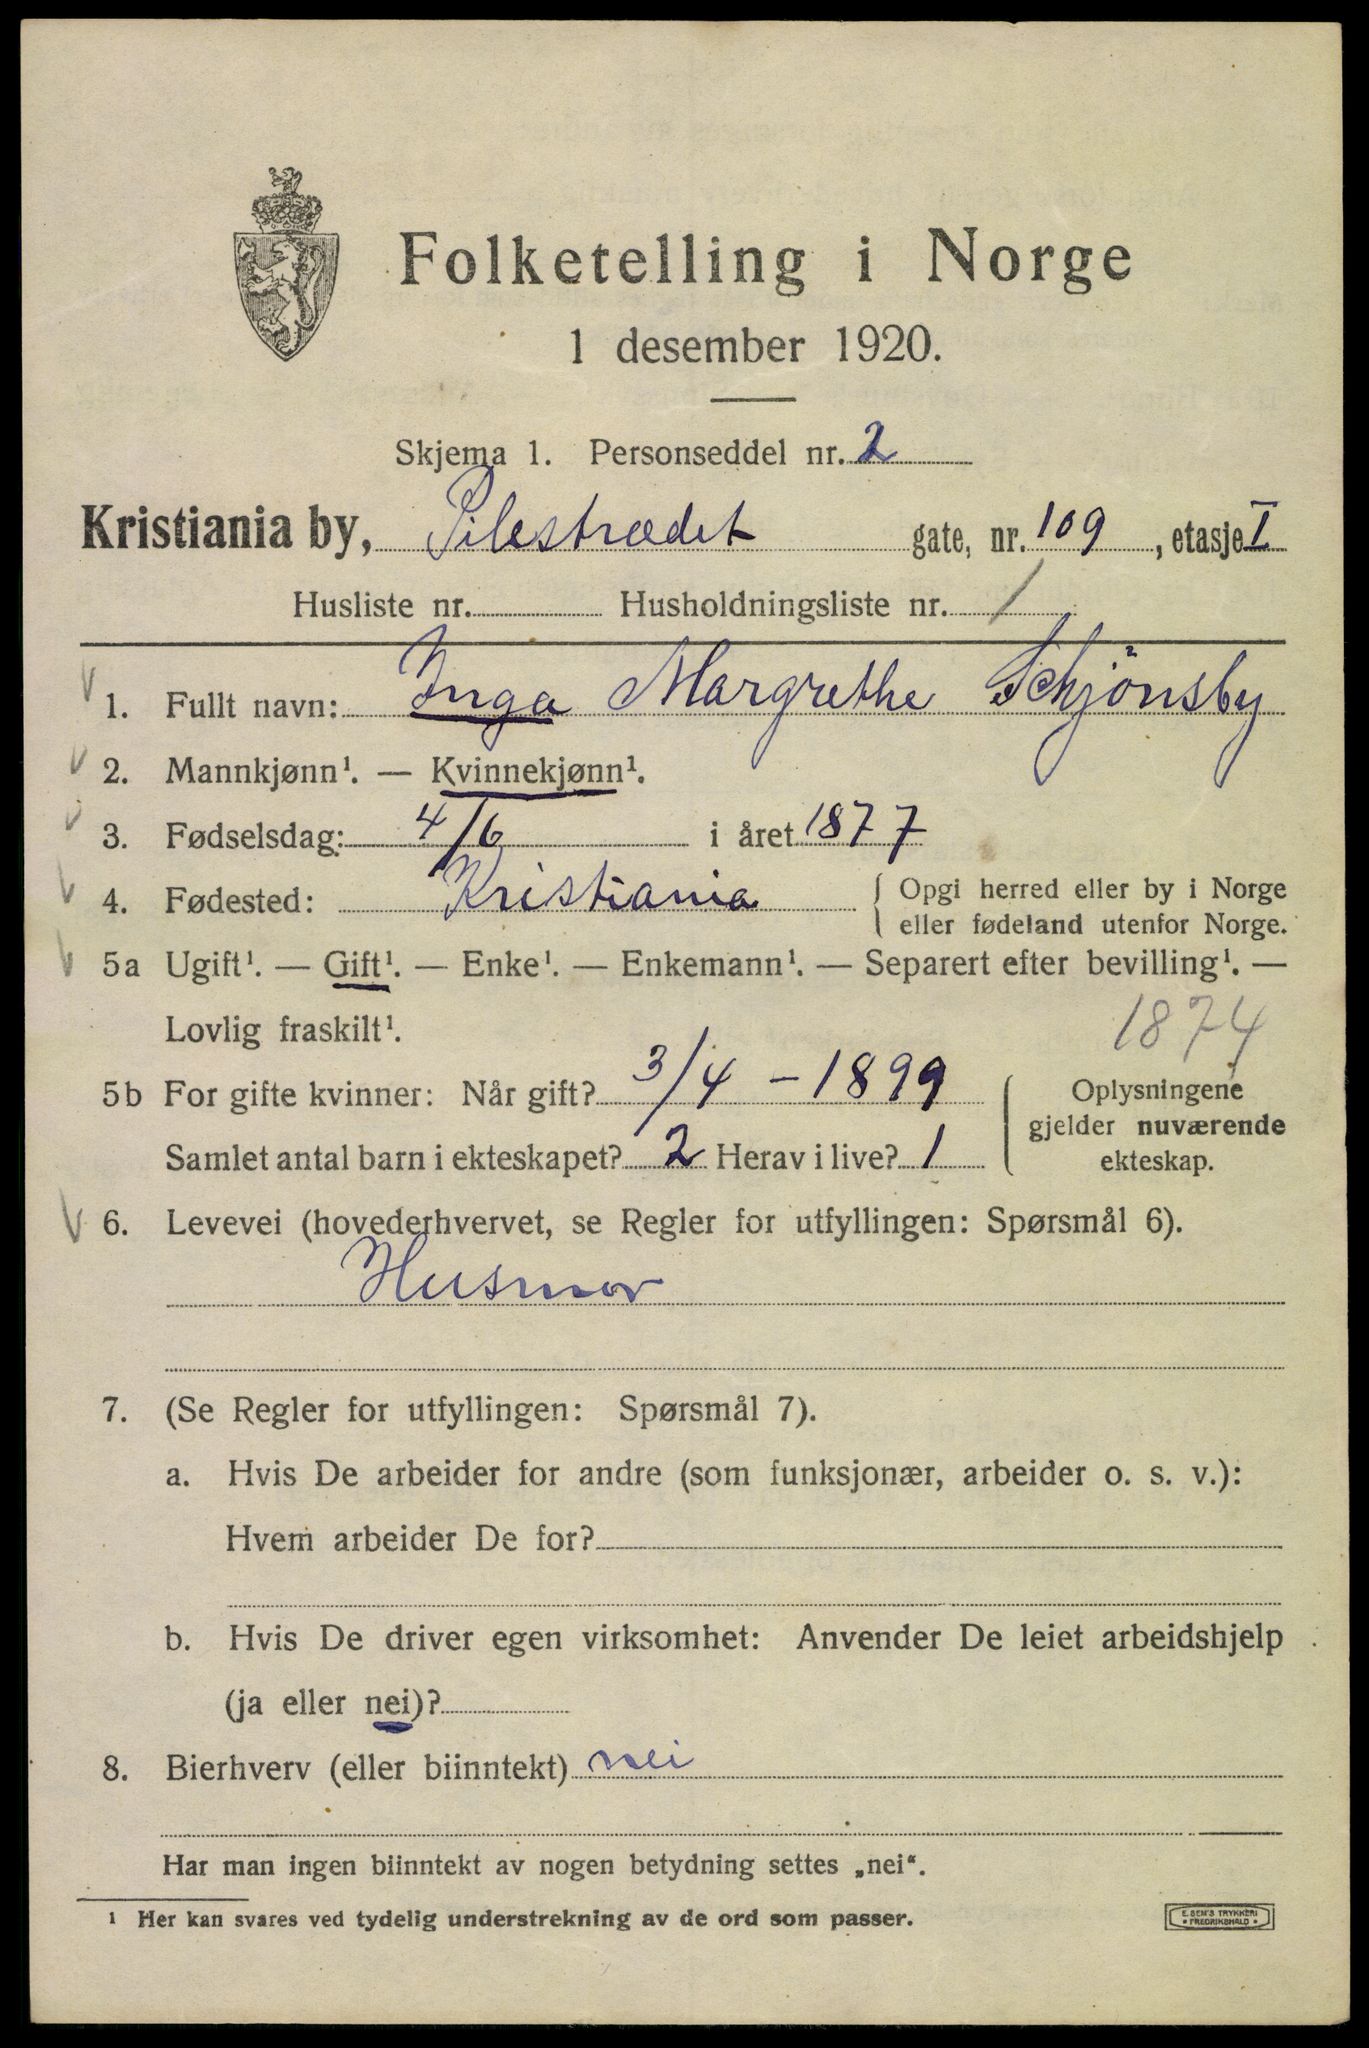 Folketelling i Norge
1 desember 1920.
Skjema 1. Personseddel nr. 2
Kristiania by, Pilestrædet gate, nr. 109, etasje I
Husliste nr. Husholdningsliste nr. 1
1. Fullt navn: Inga Margrethe Schjönsby
2. Mannkjønn¹. — Kvinnekjønn¹.
3. Fødselsdag: 4/6 i året 1877
4. Fødested: Kristiania { Opgi herred eller by i Norge
eller fødeland utenfor Norge.
5a Ugift¹. — Gift¹. — Enke¹. — Enkemann¹. — Separert efter bevilling¹. —
Lovlig fraskilt¹.
1874
5b For gifte kvinner: Når gift? 3/4 - 1899
Samlet antal barn i ekteskapet? 2 Herav i live? 1
Oplysningene
gjelder nuværende
ekteskap.
6. Levevei (hovederhvervet, se Regler for utfyllingen: Spørsmål 6).
Husmor
7. (Se Regler for utfyllingen: Spørsmål 7).
a. Hvis De arbeider for andre (som funksjonær, arbeider o. s. v.):
Hvem arbeider De for?
b. Hvis De driver egen virksomhet: Anvender De leiet arbeidshjelp
(ja eller nei)?
8. Bierhverv (eller biinntekt) nei
Har man ingen biinntekt av nogen betydning settes „nei“.
¹ Her kan svares ved tydelig understrekning av de ord som passer.
E. SEM'S TRYKKERI
• FREDRIKSHALD •